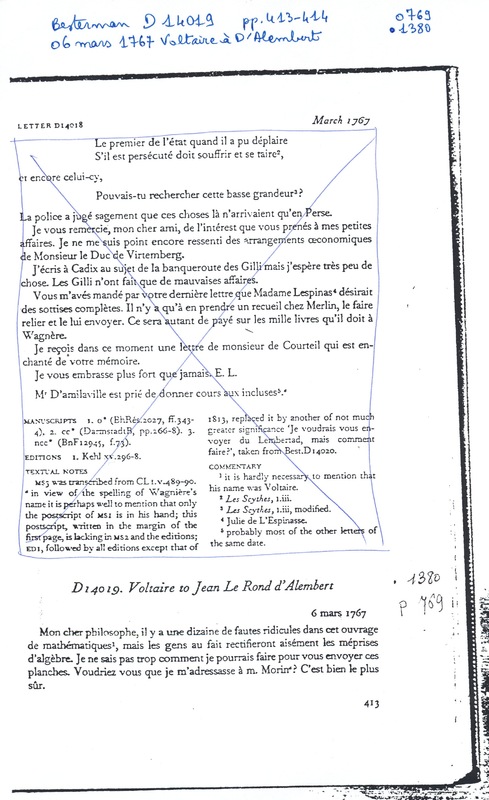 Besterman D 14019 pp. 413-414 0769
06 mars 1767 Voltaire à D'Alembert • 1380
LETTER D14018 March 1767
Le premier de l'état quand il a pu déplaire
S'il est persécuté doit souffrir et se taire²,
et encore celui-cy,
Pouvais-tu rechercher cette basse grandeur³?
La police a jugé sagement que ces choses là n'arrivaient qu'en Perse.
Je vous remercie, mon cher ami, de l'intérest que vous prenés à mes petites
affaires. Je ne me suis point encore ressenti des arrangements œconomiques
de Monsieur le Duc de Virtemberg.
J'écris à Cadix au sujet de la banqueroute des Gilli mais j'espère très peu de
chose. Les Gilli n'ont fait que de mauvaises affaires.
Vous m'avés mandé par votre dernière lettre que Madame Lespinas⁴ désirait
des sottises complètes. Il n'y a qu'à en prendre un recueil chez Merlin, le faire
relier et le lui envoyer. Ce sera autant de payé sur les mille livres qu'il doit à
Wagnère.
Je reçois dans ce moment une lettre de monsieur de Courteil qui est en-
chanté de votre mémoire.
Je vous embrasse plus fort que jamais. E. L.
Mʳ D'amilaville est prié de donner cours aux incluses⁵.ᵃ
MANUSCRIPTS 1. o* (BhRés.2027, ff.343-
4). 2. cc* (DarmstadtB, pp.266-8). 3.
ncc* (BnF12945, f.73).
EDITIONS 1. Kehl xv.296-8.
TEXTUAL NOTES
MS3 was transcribed from CL1.v.489-90.
ᵃ in view of the spelling of Wagnière's
name it is perhaps well to mention that only
the postscript of MS1 is in his hand; this
postscript, written in the margin of the
first page, is lacking in MS2 and the editions;
ED1, followed by all editions except that of
1813, replaced it by another of not much
greater significance 'Je voudrais vous en-
voyer du Lembertad, mais comment
faire?', taken from Best.D14020.
COMMENTARY
¹ it is hardly necessary to mention that
his name was Voltaire.
² Les Scythes, 1.iii.
³ Les Scythes, 1.iii, modified.
⁴ Julie de L'Espinasse.
⁵ probably most of the other letters of
the same date.
D14019. Voltaire to Jean Le Rond d'Alembert
• 1380
p 769
6 mars 1767
Mon cher philosophe, il y a une dizaine de fautes ridicules dans cet ouvrage
de mathématiques¹, mais les gens au fait rectifieront aisément les méprises
d'algèbre. Je ne sais pas trop comment je pourrais faire pour vous envoyer ces
planches. Voudriez vous que je m'adressasse à m. Morinᵃ? C'est bien le plus
sûr.
413